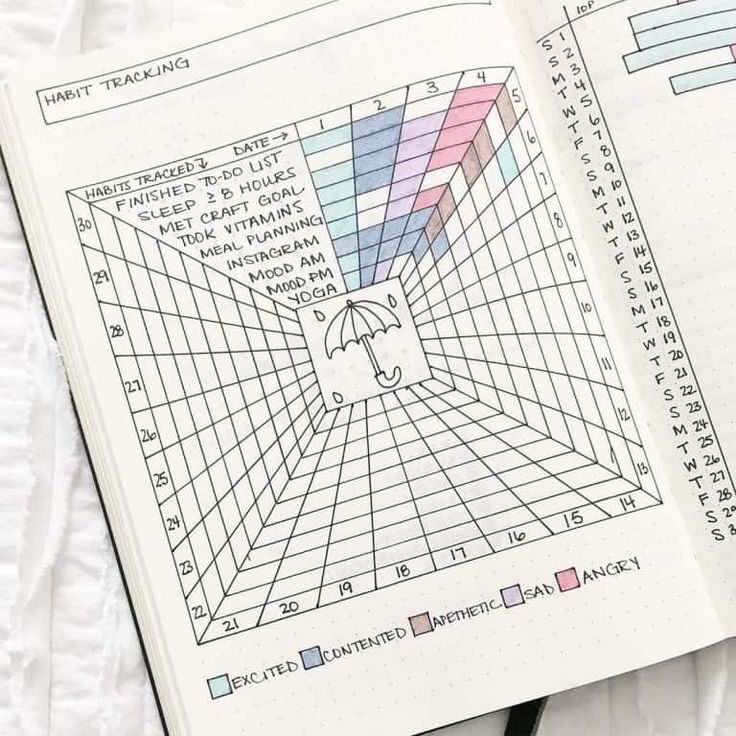 HABIT TRACKING
HABITS TRACKED↓ DATE →
FINISHED TO-DO LIST
SLEEP ≥ 8 HOURS
MET CRAFT GOAL
TOOK VITAMINS
MEAL PLANNING
INSTAGRAM
MOOD AM
MOOD PM
YOGA
1 2 3 4
5
6
7
10
11
12
13
14
15
16
17
18
19
20
21
22
23
24
25
26
27
28
29
30
EXCITED CONTENTED APETHETIC SAD ANGRY
10P
S 1
S 2
M 3
T 4
W 5
T 6
F 7
S 8
S 9
M 10
T 11
W 12
T 13
F 14
S 15
S 16
M 17
T 18
W 19
T 20
F 21
S 22
S 23
M 24
T 25
W 26
T 27
F 28
S 29
S 3